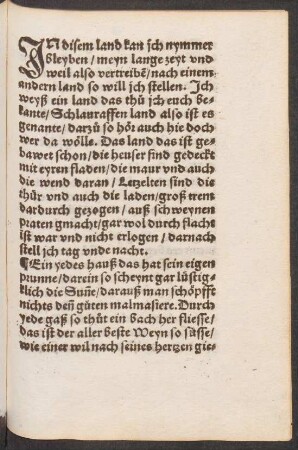 IN disem land kan ich nymmer
bleyben / meyn lange zeyt vnd
weil also vertreibē / nach einem
andern land so will ich stellen. Ich
weyß ein land das thů ich euch be-
kante / Schlauraffen land also ist es
genante / darzů so hört auch hie doch
wer da wölle. Das land das ist ge-
bawet schon / die heuser sind gedeckt
mit eyren fladen / die maur vnd auch
die wend daran / Letzelten sind die
thür vnd auch die laden / groß trem
dardurch gezogen / auß schweynen
praten gmacht / gar wol durch flacht
ist war vnd nicht erlogen / darnach
stell ich tag vnde nacht.
¶ Ein yedes hauß das hat sein eigen
prunne / darein so scheynt gar lustig-
klich die Sunē / darauß man schöpfft
nichts deñ gůten malmasiere. Durch
yede gaß so thůt ein bach her fliesse /
das ist der aller beste Weyn so süsse /
wie einer wil nach seines hertzen gie-